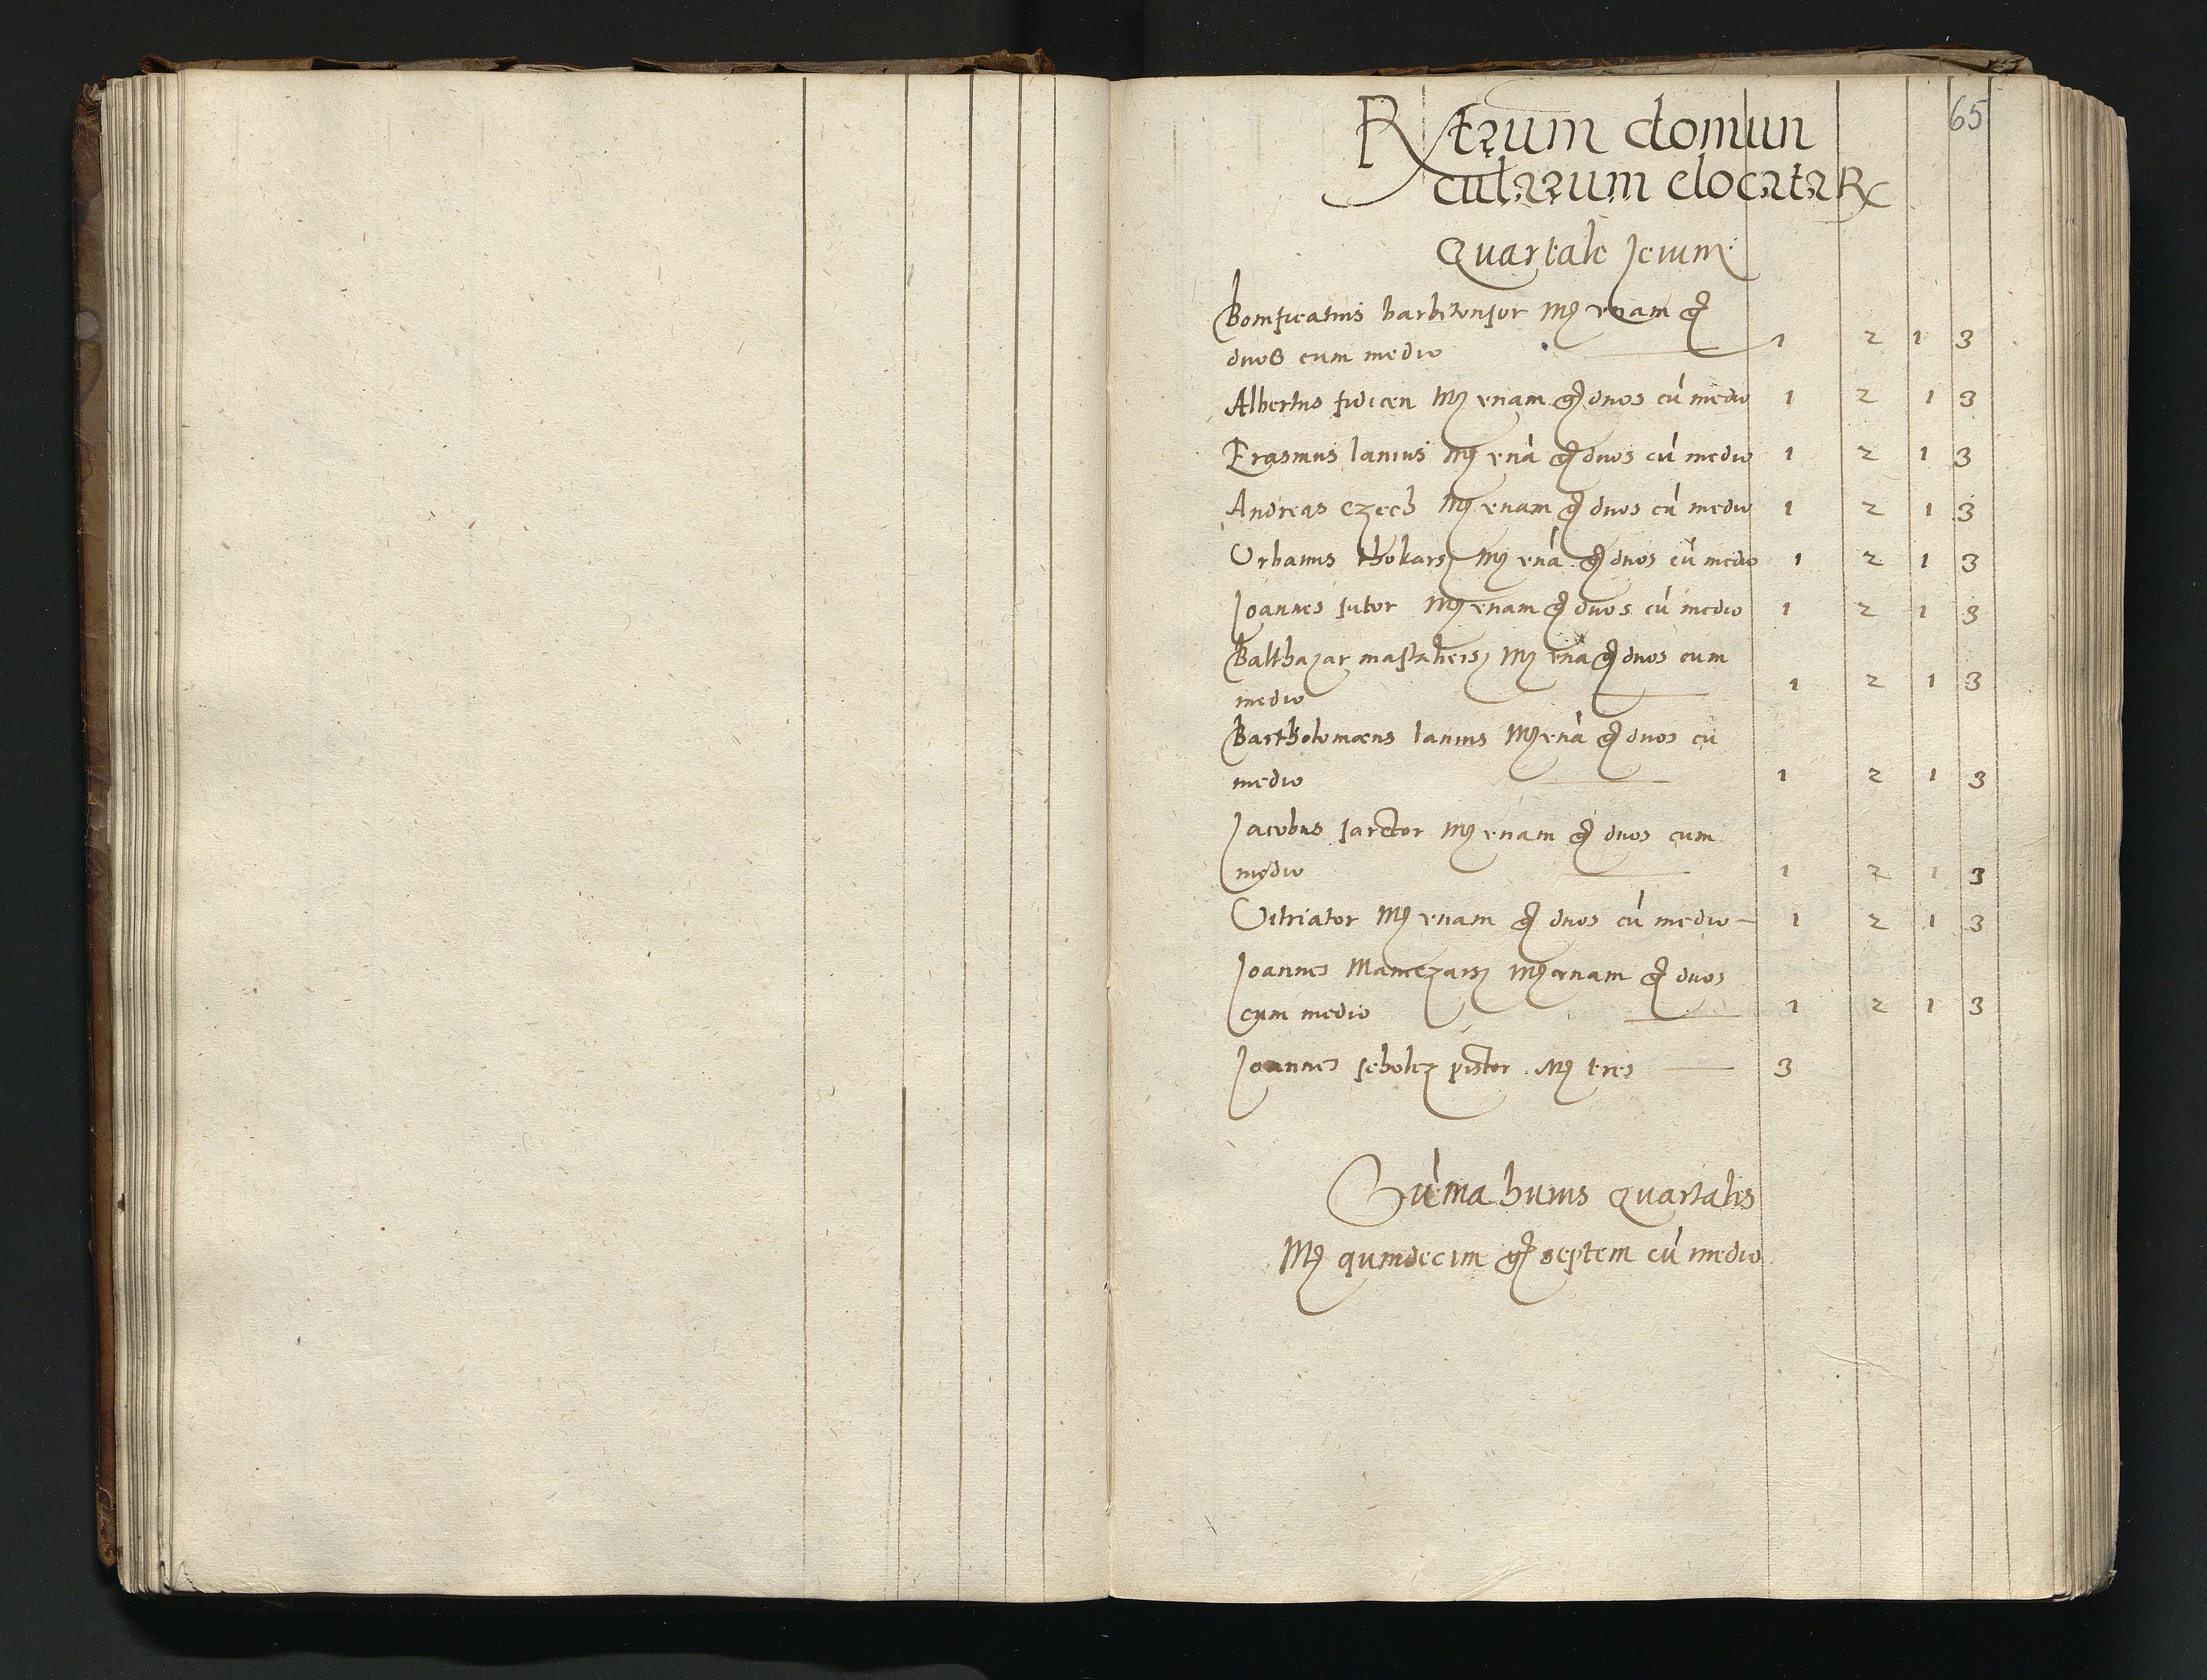 65
Rerum domun
cularum elocatar
Quartale Ieium
Bonifieatius barbitonsor Mr vnam gr
duos cum medio 1 2 1 3
Albertus fidicen Mr vnam gr duos cū medio 1 2 1 3
Erasmus lanius Mr vnā gr duos cū medio 1 2 1 3
Andreas Czech Mr vnam gr duos cū medio 1 2 1 3
Vrbanus thokarz Mr vnā gr duos cū medio 1 2 1 3
Joannes sutor Mr vnam gr duos cū medio 1 2 1 3
Balthazar mastalierz Mr vnā gr duos cum
medio 1 2 1 3
Bartholomæus lanius Mr vnā gr duos cū
medio 1 2 1 3
Jacobus sarctor Mr vnam gr duos cum
medio 1 2 1 3
Vitriator Mr vnam gr duos cū medio 1 2 1 3
Joannes Mamczarz Mr vnam gr duos
cum medio 1 2 1 3
Joannes scholcz pistor Mr tres 3
Sūma huius Quartalis
Mr quindecim gr septem cū medio